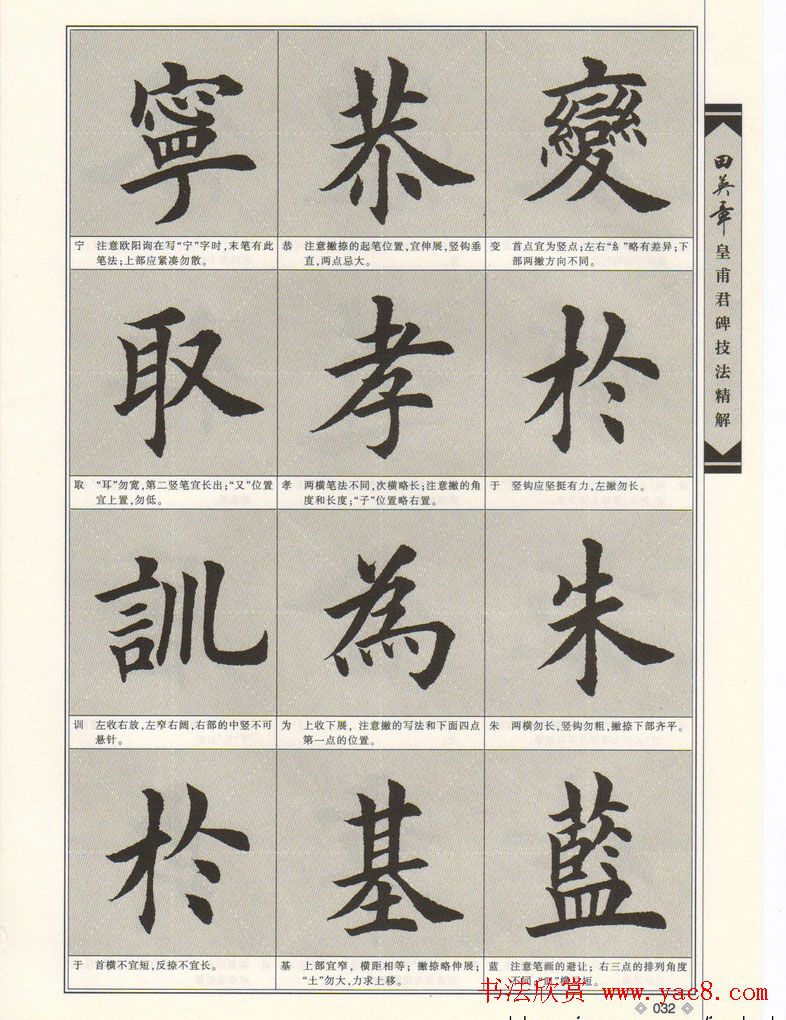 寧
恭
變
宁 注意欧阳询在写“宁”字时,末笔有此
笔法;上部应紧凑勿散。
恭 注意撇捺的起笔位置,宜伸展,竖钩垂
直,两点忌大。
变 首点宜为竖点;左右“糹”略有差异;下
部两撇方向不同。
取
孝
於
取 “耳”勿宽,第二竖笔宜长出;“又”位置
宜上置,勿低。
孝 两横笔法不同,次横略长;注意撇的角
度和长度;“子”位置略右置。
于 竖钩应坚挺有力,左撇勿长。
訓
為
朱
训 左收右放,左窄右阔,右部的中竖不可
悬针。
为 上收下展,注意撇的写法和下面四点
第一点的位置。
朱 两横勿长,竖钩勿粗,撇捺下部齐平。
於
基
藍
于 首横不宜短,反捺不宜长。
基 上部宜窄,横距相等;撇捺略伸展;
“土”勿大,力求上移。
蓝 注意笔画的避让;右三点的排列角度
不同;“皿”横勿短。
田英章
皇甫君碑技法精解
书法欣赏 www.yac8.com
032